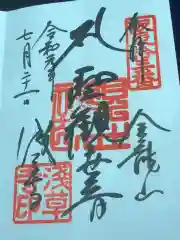 奉拝
金龍山
聖観世音
令和元年
七月二十一日
浅草寺
浅草寺印